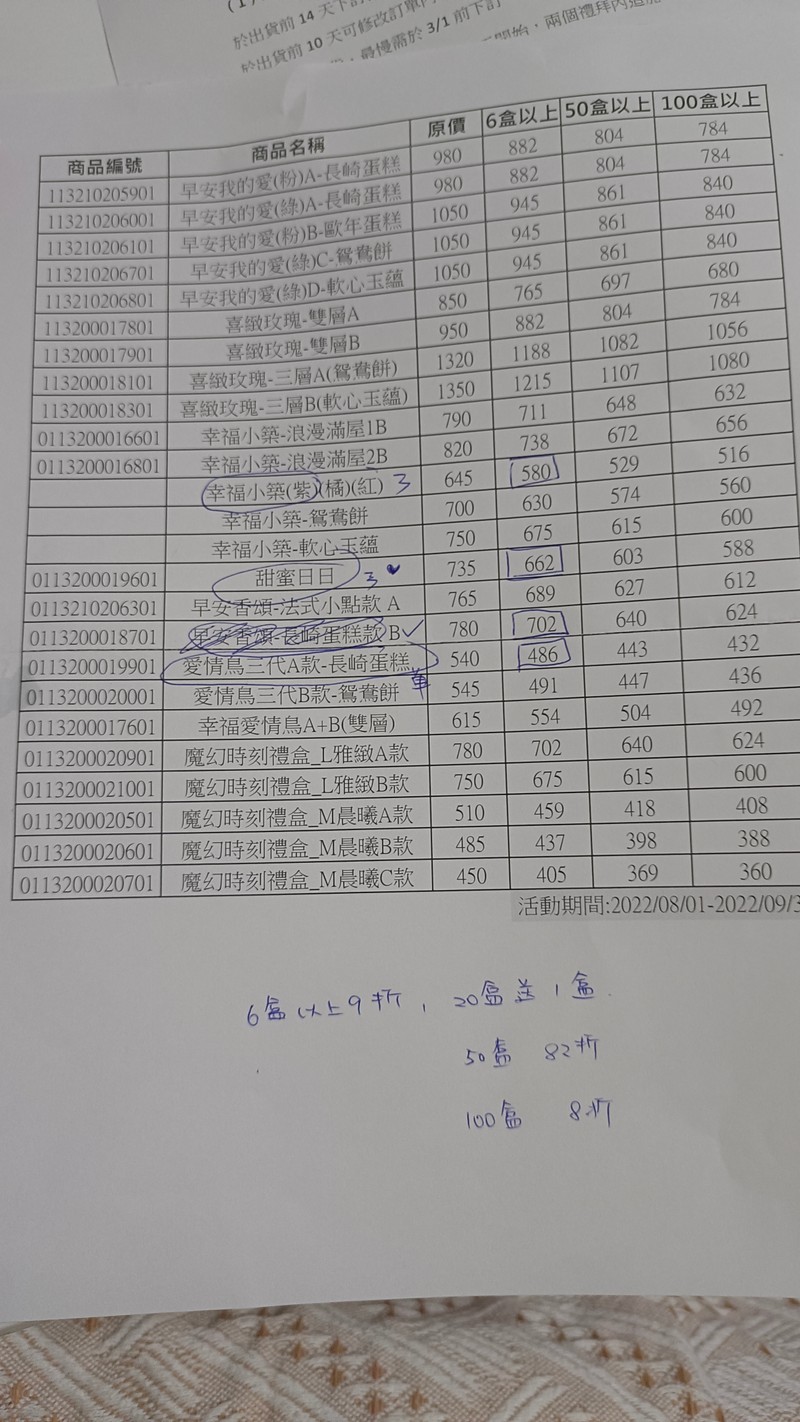 (1)
於出貨前 14 天下訂
於出貨前 10 天可修改訂單
最慢需於 3/1 前下訂
開始，兩個禮拜內
商品編號 商品名稱 原價 6盒以上 50盒以上 100盒以上
113210205901 早安我的愛(粉)A-長崎蛋糕 980 882 804 784
113210206001 早安我的愛(綠)A-長崎蛋糕 980 882 804 784
113210206101 早安我的愛(粉)B-歐年蛋糕 1050 945 861 840
113210206701 早安我的愛(綠)C-鴛鴦餅 1050 945 861 840
113210206801 早安我的愛(綠)D-軟心玉蘊 1050 945 861 840
113200017801 喜緻玫瑰-雙層A 850 765 697 680
113200017901 喜緻玫瑰-雙層B 950 882 804 784
113200018101 喜緻玫瑰-三層A(鴛鴦餅) 1320 1188 1082 1056
113200018301 喜緻玫瑰-三層B(軟心玉蘊) 1350 1215 1107 1080
0113200016601 幸福小築-浪漫滿屋1B 790 711 648 632
0113200016801 幸福小築-浪漫滿屋2B 820 738 672 656
幸福小築(紫)(橘)(紅) 3 645 580 529 516
幸福小築-鴛鴦餅 700 630 574 560
幸福小築-軟心玉蘊 750 675 615 600
0113200019601 甜蜜日日 3 735 662 603 588
0113210206301 早安香頌-法式小點款 A 765 689 627 612
0113200018701 早安香頌-長崎蛋糕款 B 780 702 640 624
0113200019901 愛情鳥三代A款-長崎蛋糕 單 540 486 443 432
0113200020001 愛情鳥三代B款-鴛鴦餅 545 491 447 436
0113200017601 幸福愛情鳥A+B(雙層) 615 554 504 492
0113200020901 魔幻時刻禮盒_L雅緻A款 780 702 640 624
0113200021001 魔幻時刻禮盒_L雅緻B款 750 675 615 600
0113200020501 魔幻時刻禮盒_M晨曦A款 510 459 418 408
0113200020601 魔幻時刻禮盒_M晨曦B款 485 437 398 388
0113200020701 魔幻時刻禮盒_M晨曦C款 450 405 369 360
活動期間:2022/08/01-2022/09/3
6盒以上9折, 20盒送1盒.
50盒 82折
100盒 8折